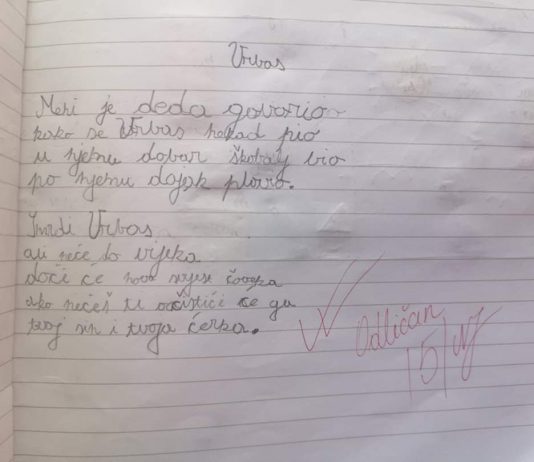 Vrbas
Meni je deda govorio
kako se Vrbas nekad pio
u njemu dobar škobalj bio
po njemu dajak plovio.
Smrdi Vrbas
ali neće do vijeka
doći će nova svijest čovjeka
ako nećeš ti očistiće ga
tvoj sin i tvoja ćerka.
Odličan
5